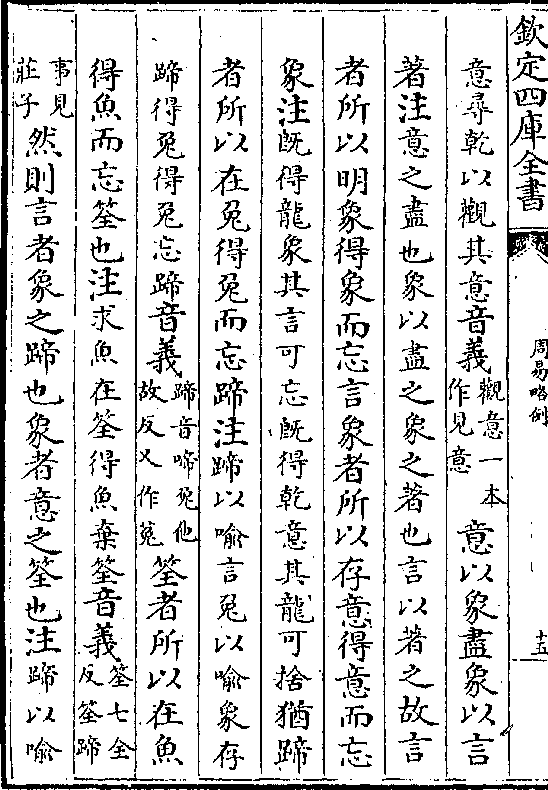 欽定四庫全書
周易略例
十五
意尋乾以觀其意音義觀意一本作見意意以象盡象以言
著注意之盡也象以盡之象之著也言以著之故言
者所以明象得象而忘言象者所以存意得意而忘
象注既得龍象其言可忘既得乾意其龍可捨猶蹄
者所以在兔得兔而忘蹄注蹄以喻言兔以喻象存
蹄得兔得兔忘蹄音義蹄音啼兔他故反又作菟筌者所以在魚
得魚而忘筌也注求魚在筌得魚棄筌音義筌七全反筌蹄
事見莊子然則言者象之蹄也象者意之筌也注蹄以喻